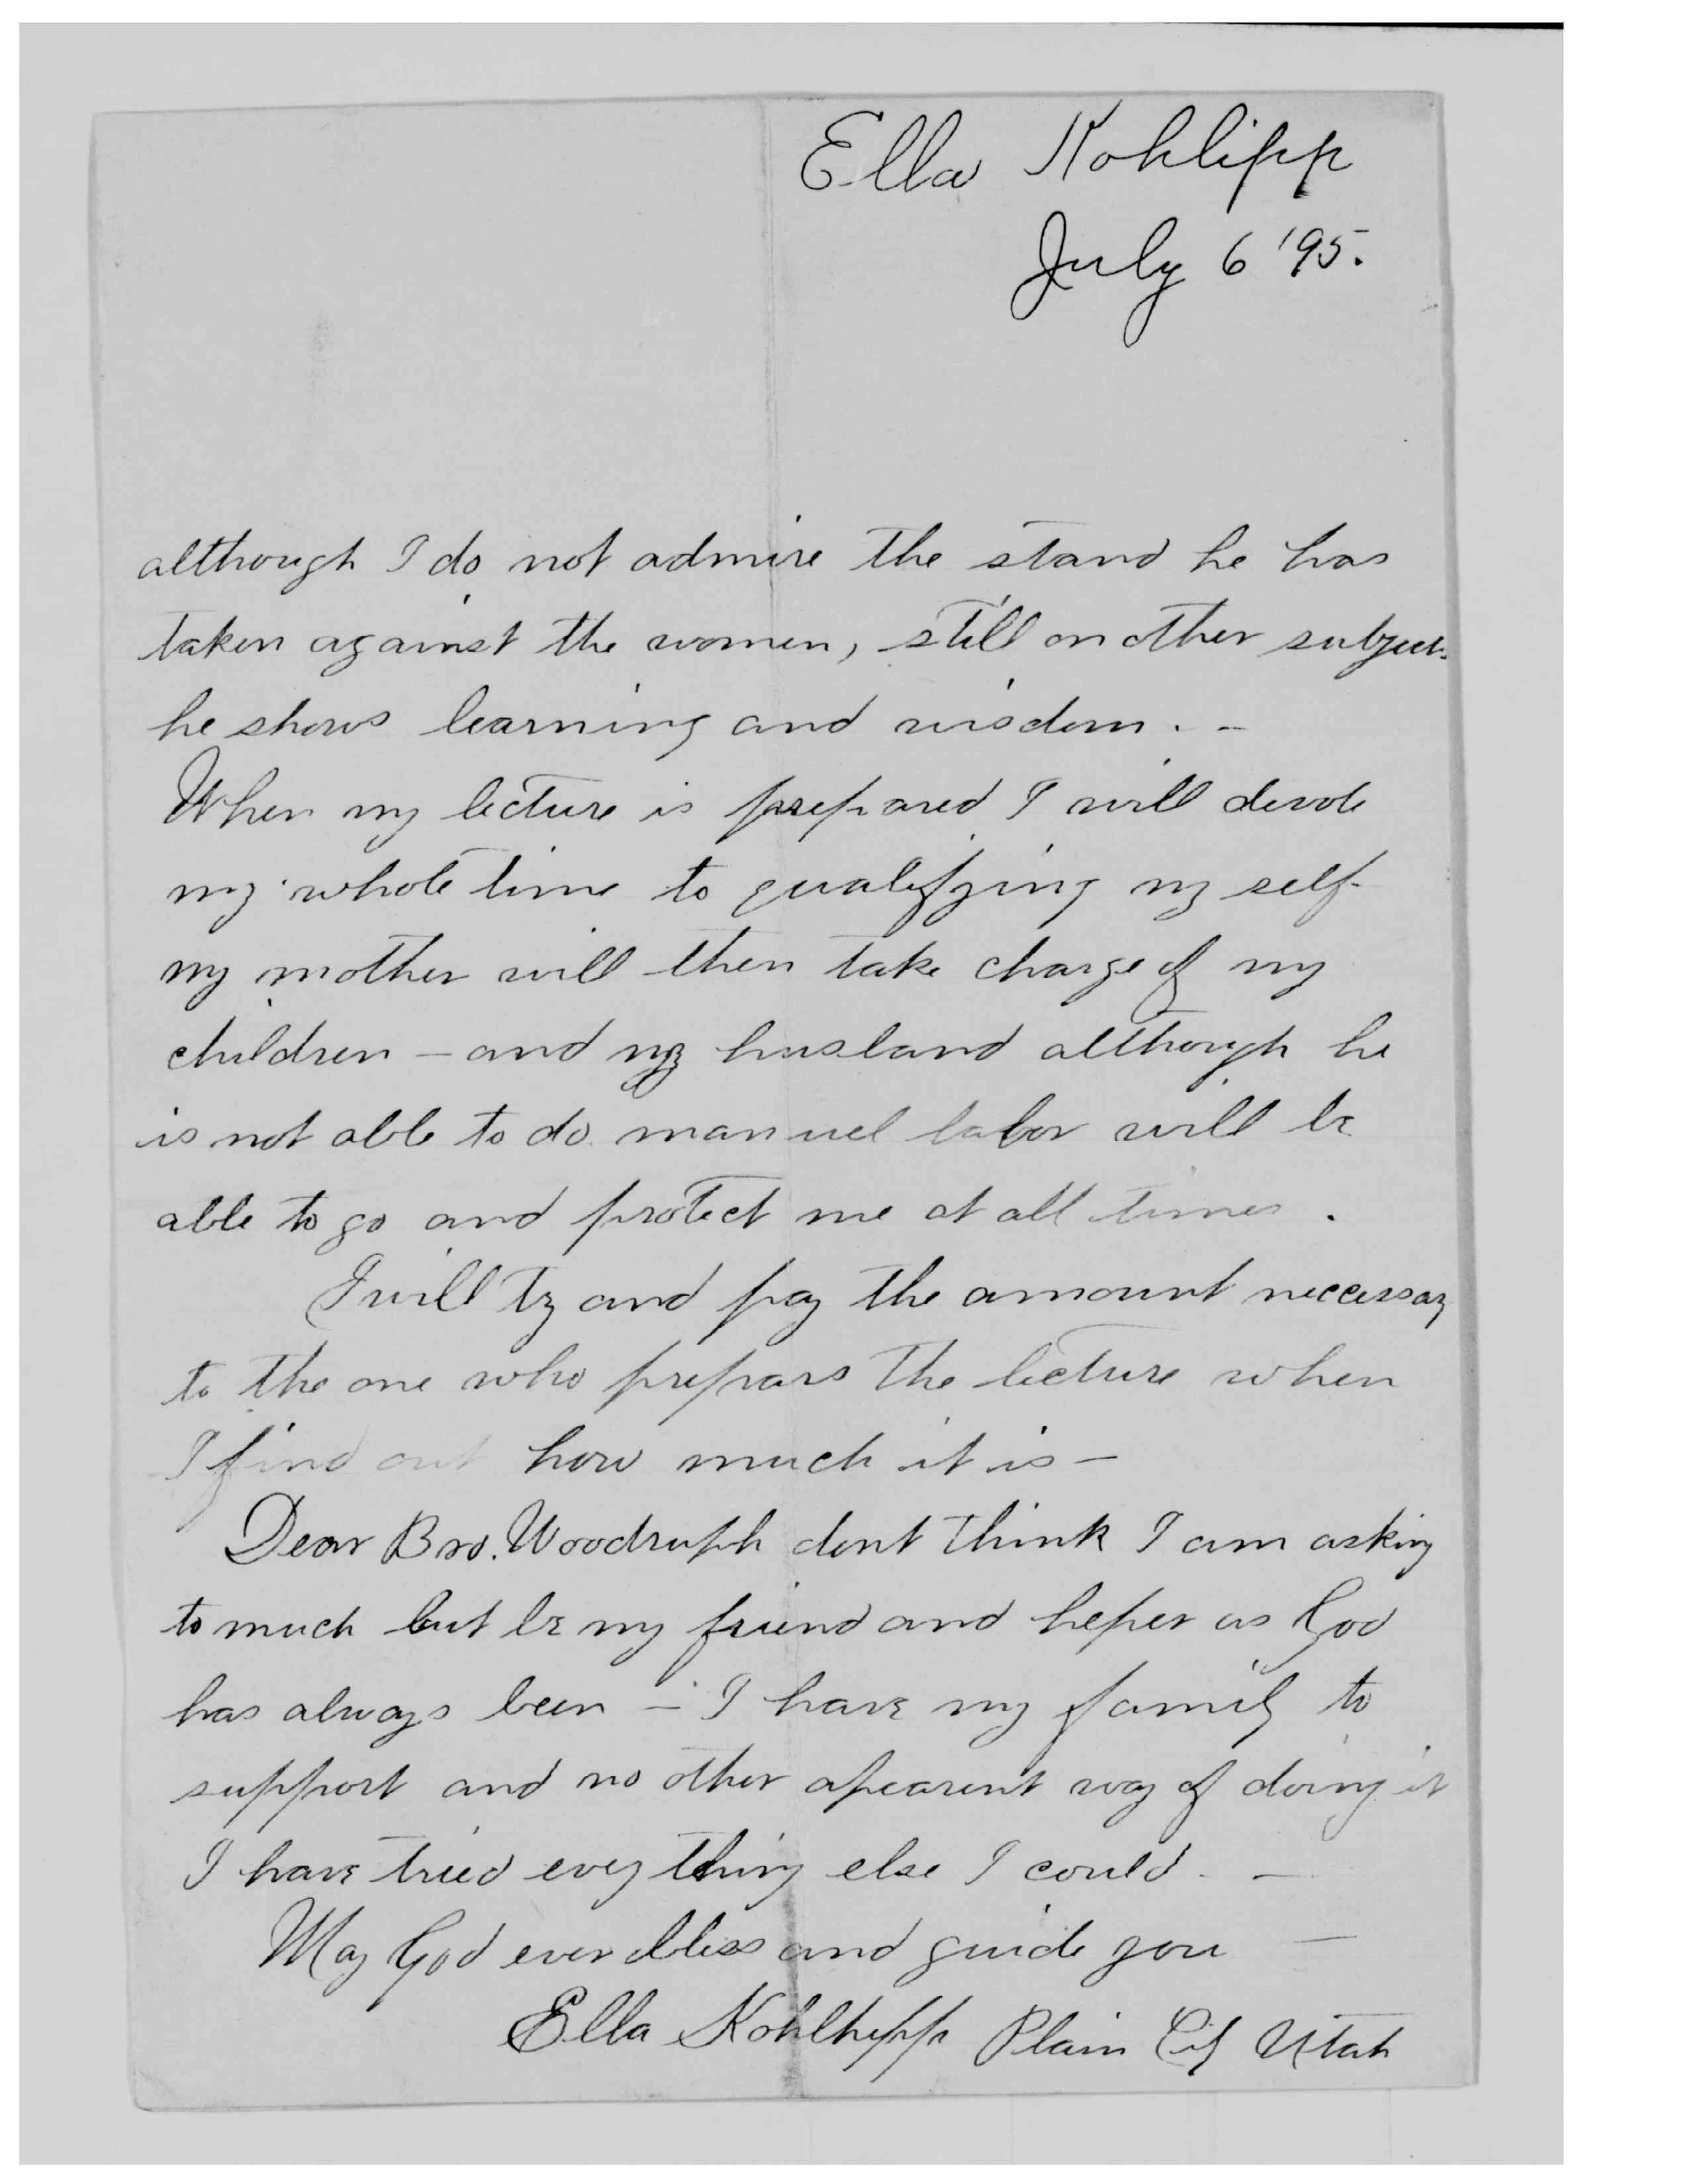 Ella Kohlipp
July 6 '95.
although I do not admire the stand he has
taken against the women, still on other subjects
he shows learning and wisdom. -
When my lecture is prepared I will devote
my whole time to qualifying my self -
my mother will then take charge of my
children - and my husband although he
is not able to do manuel labor will be
able to go and protect me at all times.
I will try and pay the amount neccessary
to the one who prepars the lecture when
I find out how much it is -
Dear Bro. Woodruph dont think I am asking
to much but be my friend and helper as God
has always been - I have my family to
support and no other apearent way of doing it
I have tried every thing else I could. -
May God ever bless and guide you -
Ella Kohlhepp Plain City Utah